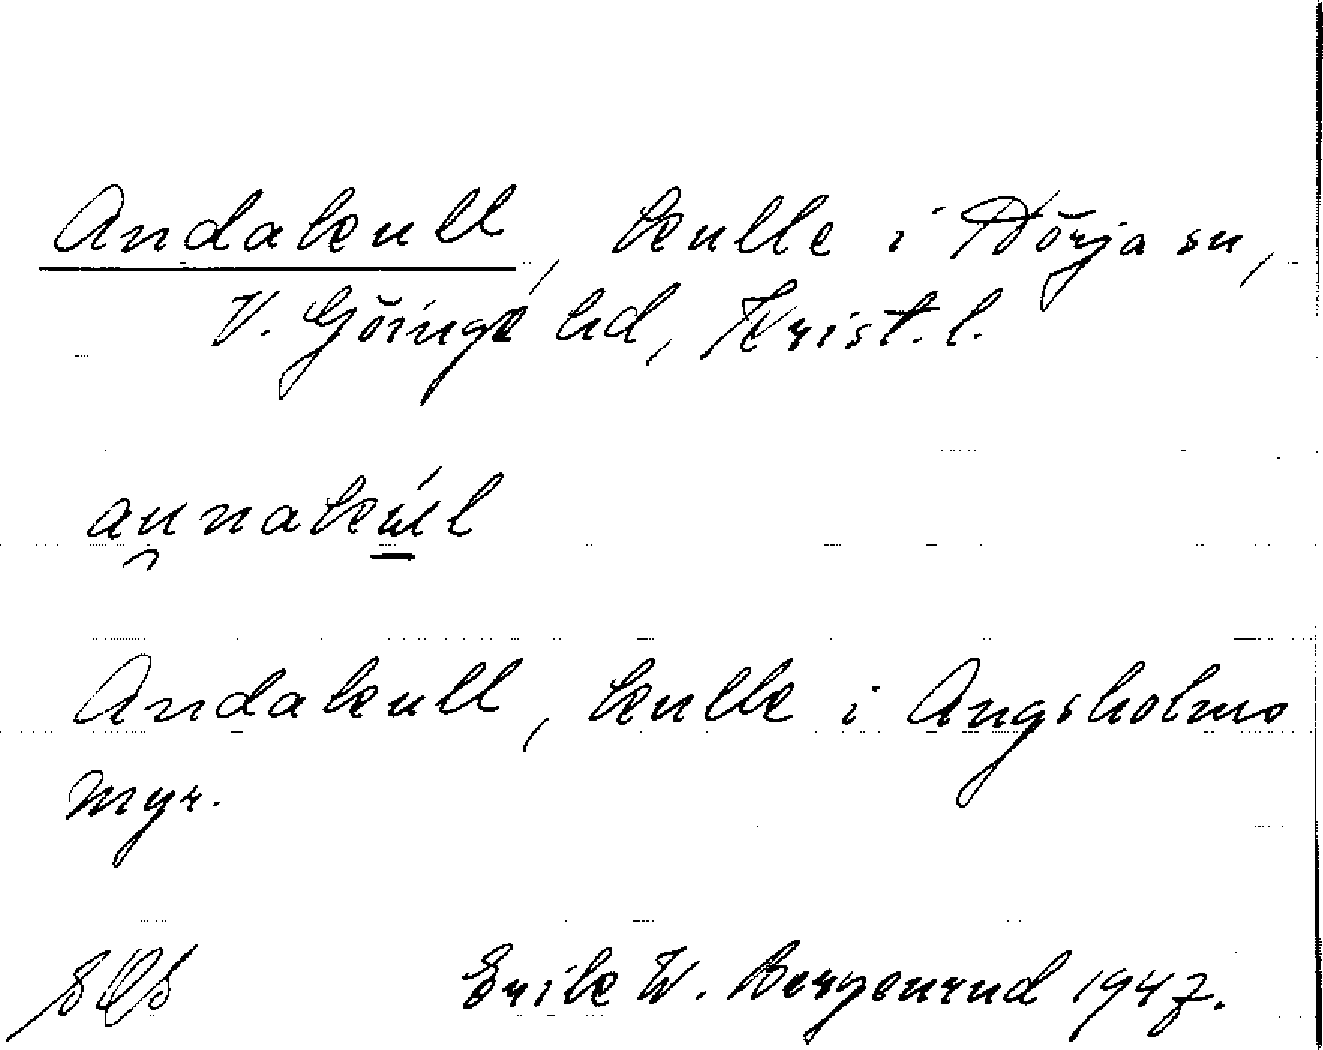 Andakull, kulle i Nörja sn,
V. Göinge hd, Krist. l.
annakúl
Andakull, kulle i Angsholms
myr.
Erik W. Bergenrud 1947.